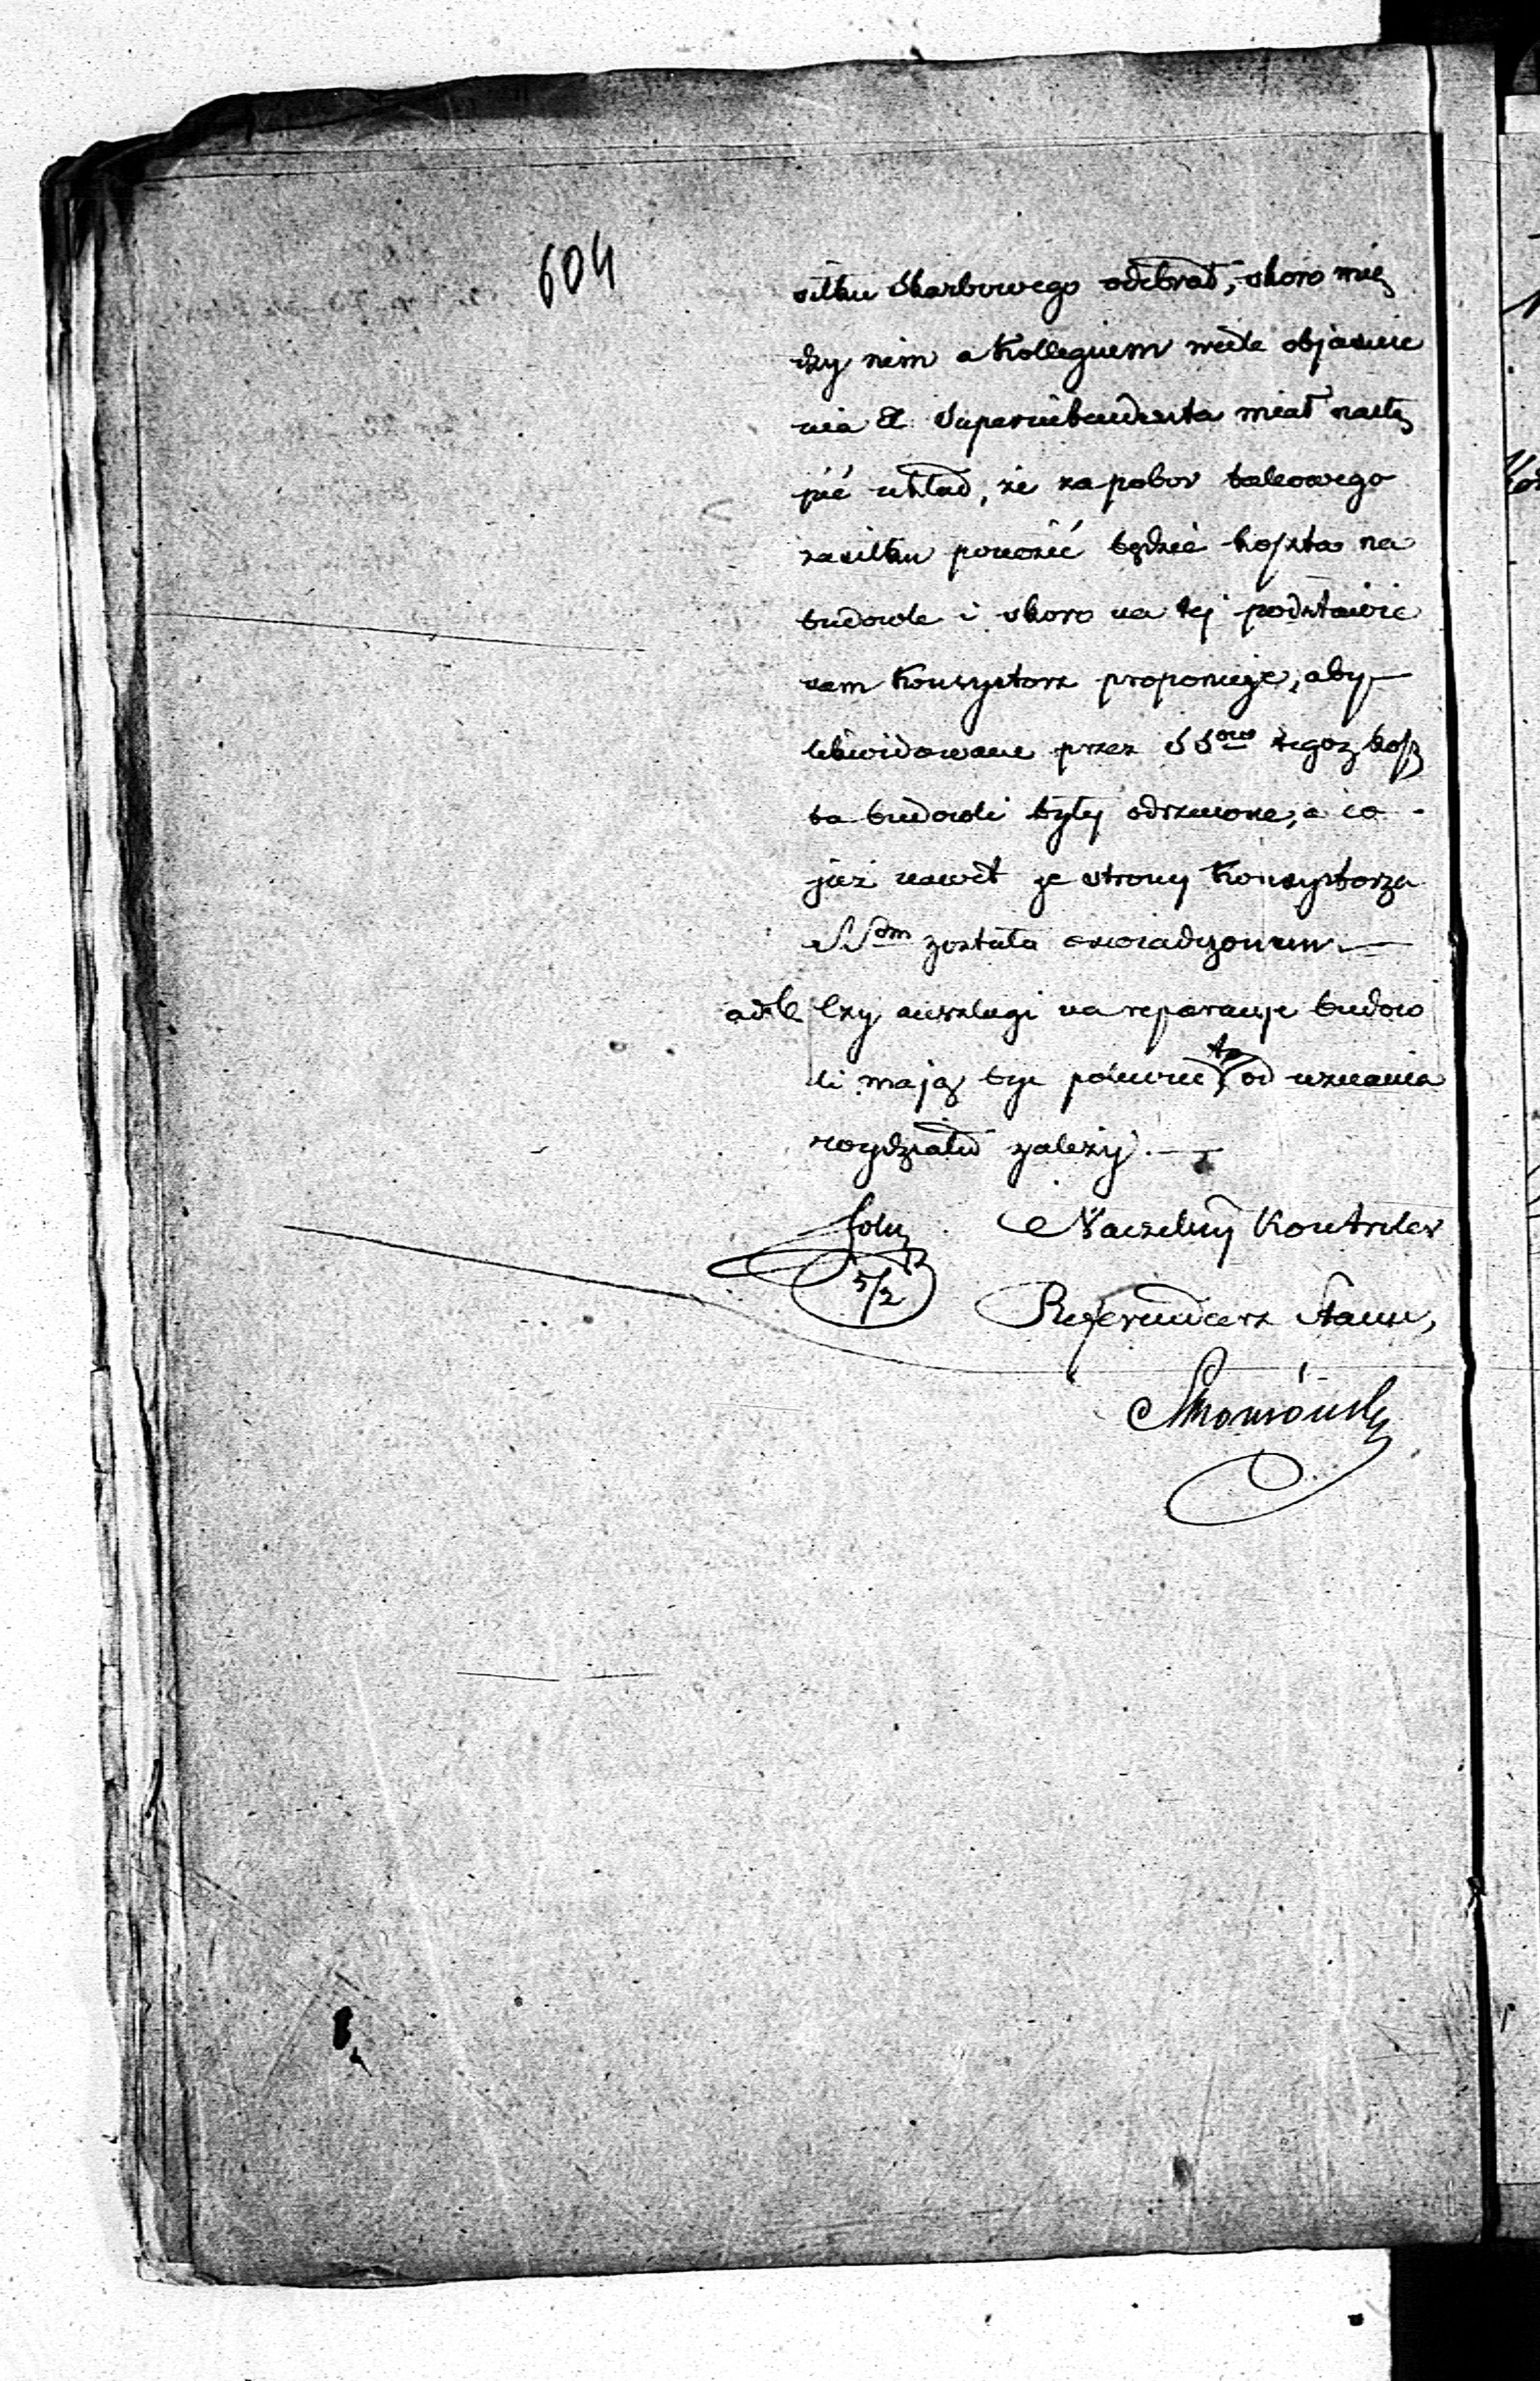 604
siłku Skarbowego odebrał, skoro mię
dzy nim a Kollegium wedle objaśnie
nia X. Superintendenta miał nastą
pić układ, że za pobor takowego
zasiłku ponosić będzie koszta na
budowle i skoro na tej podstawie
sam Konsystorz proponuje, aby
likwidowane przez SS owo tegoż kosz
ta budowli były odrzucone, a co
już nawet ze strony Konsystorza
zostało oświadczonem
ad b Czy anszlagi na reparacye budow
li mają być to od uznania
wydziału zależy.
5/2
Naczelny Kontroler
Referendarz Stanu,